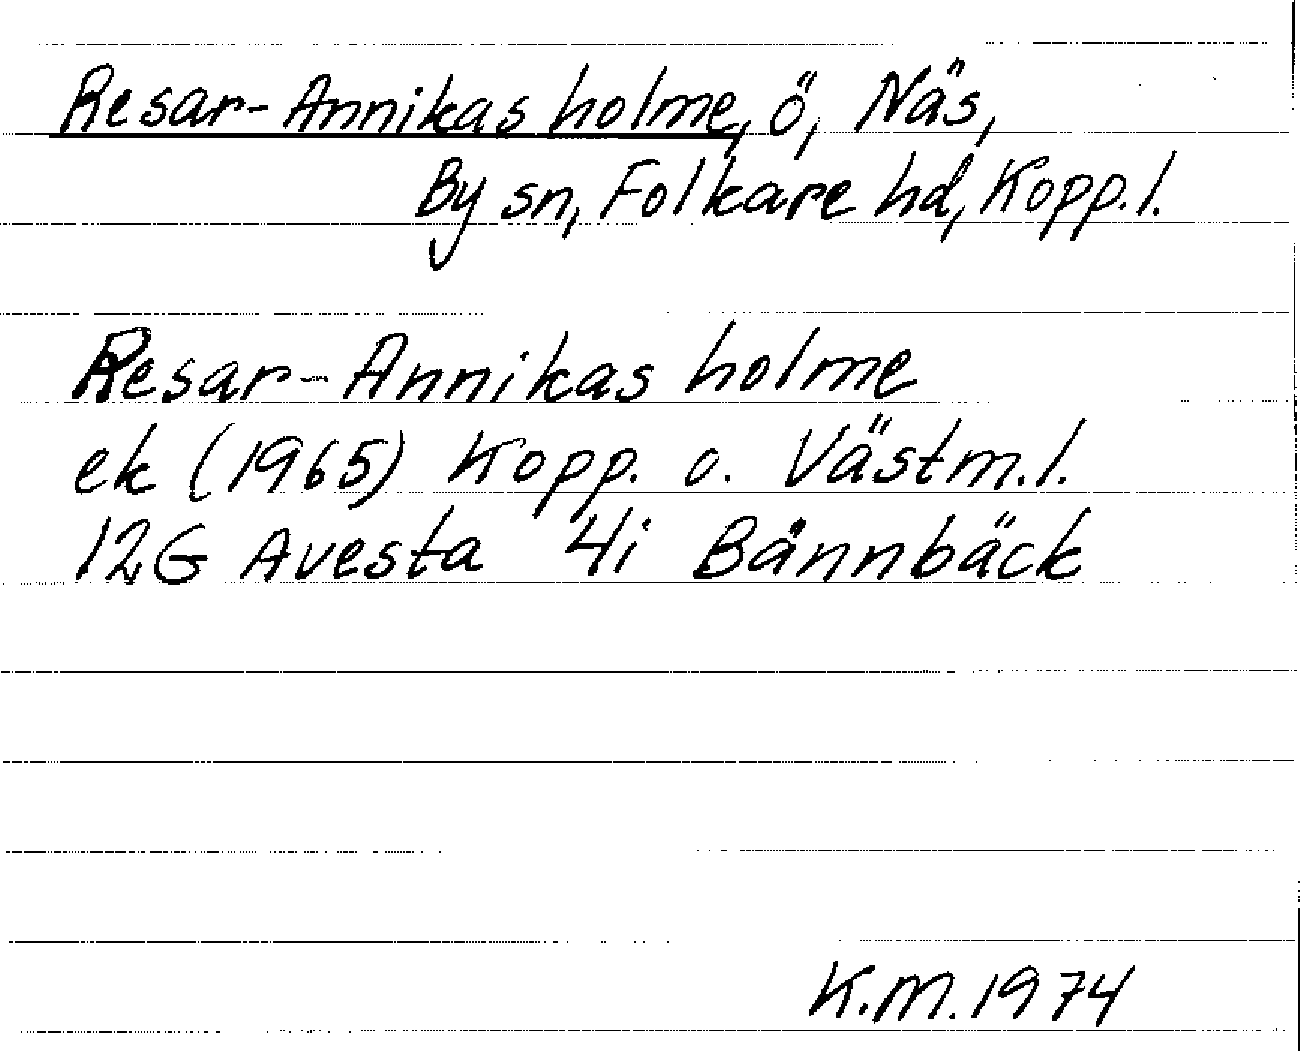 Resar-Annikas holme, ö, Näs,
By sn, Folkare hd, Kopp.l.
Resar-Annikas holme
ek (1965) Kopp. o. Västm.l.
12G Avesta 4i Bännbäck
K.M. 1974